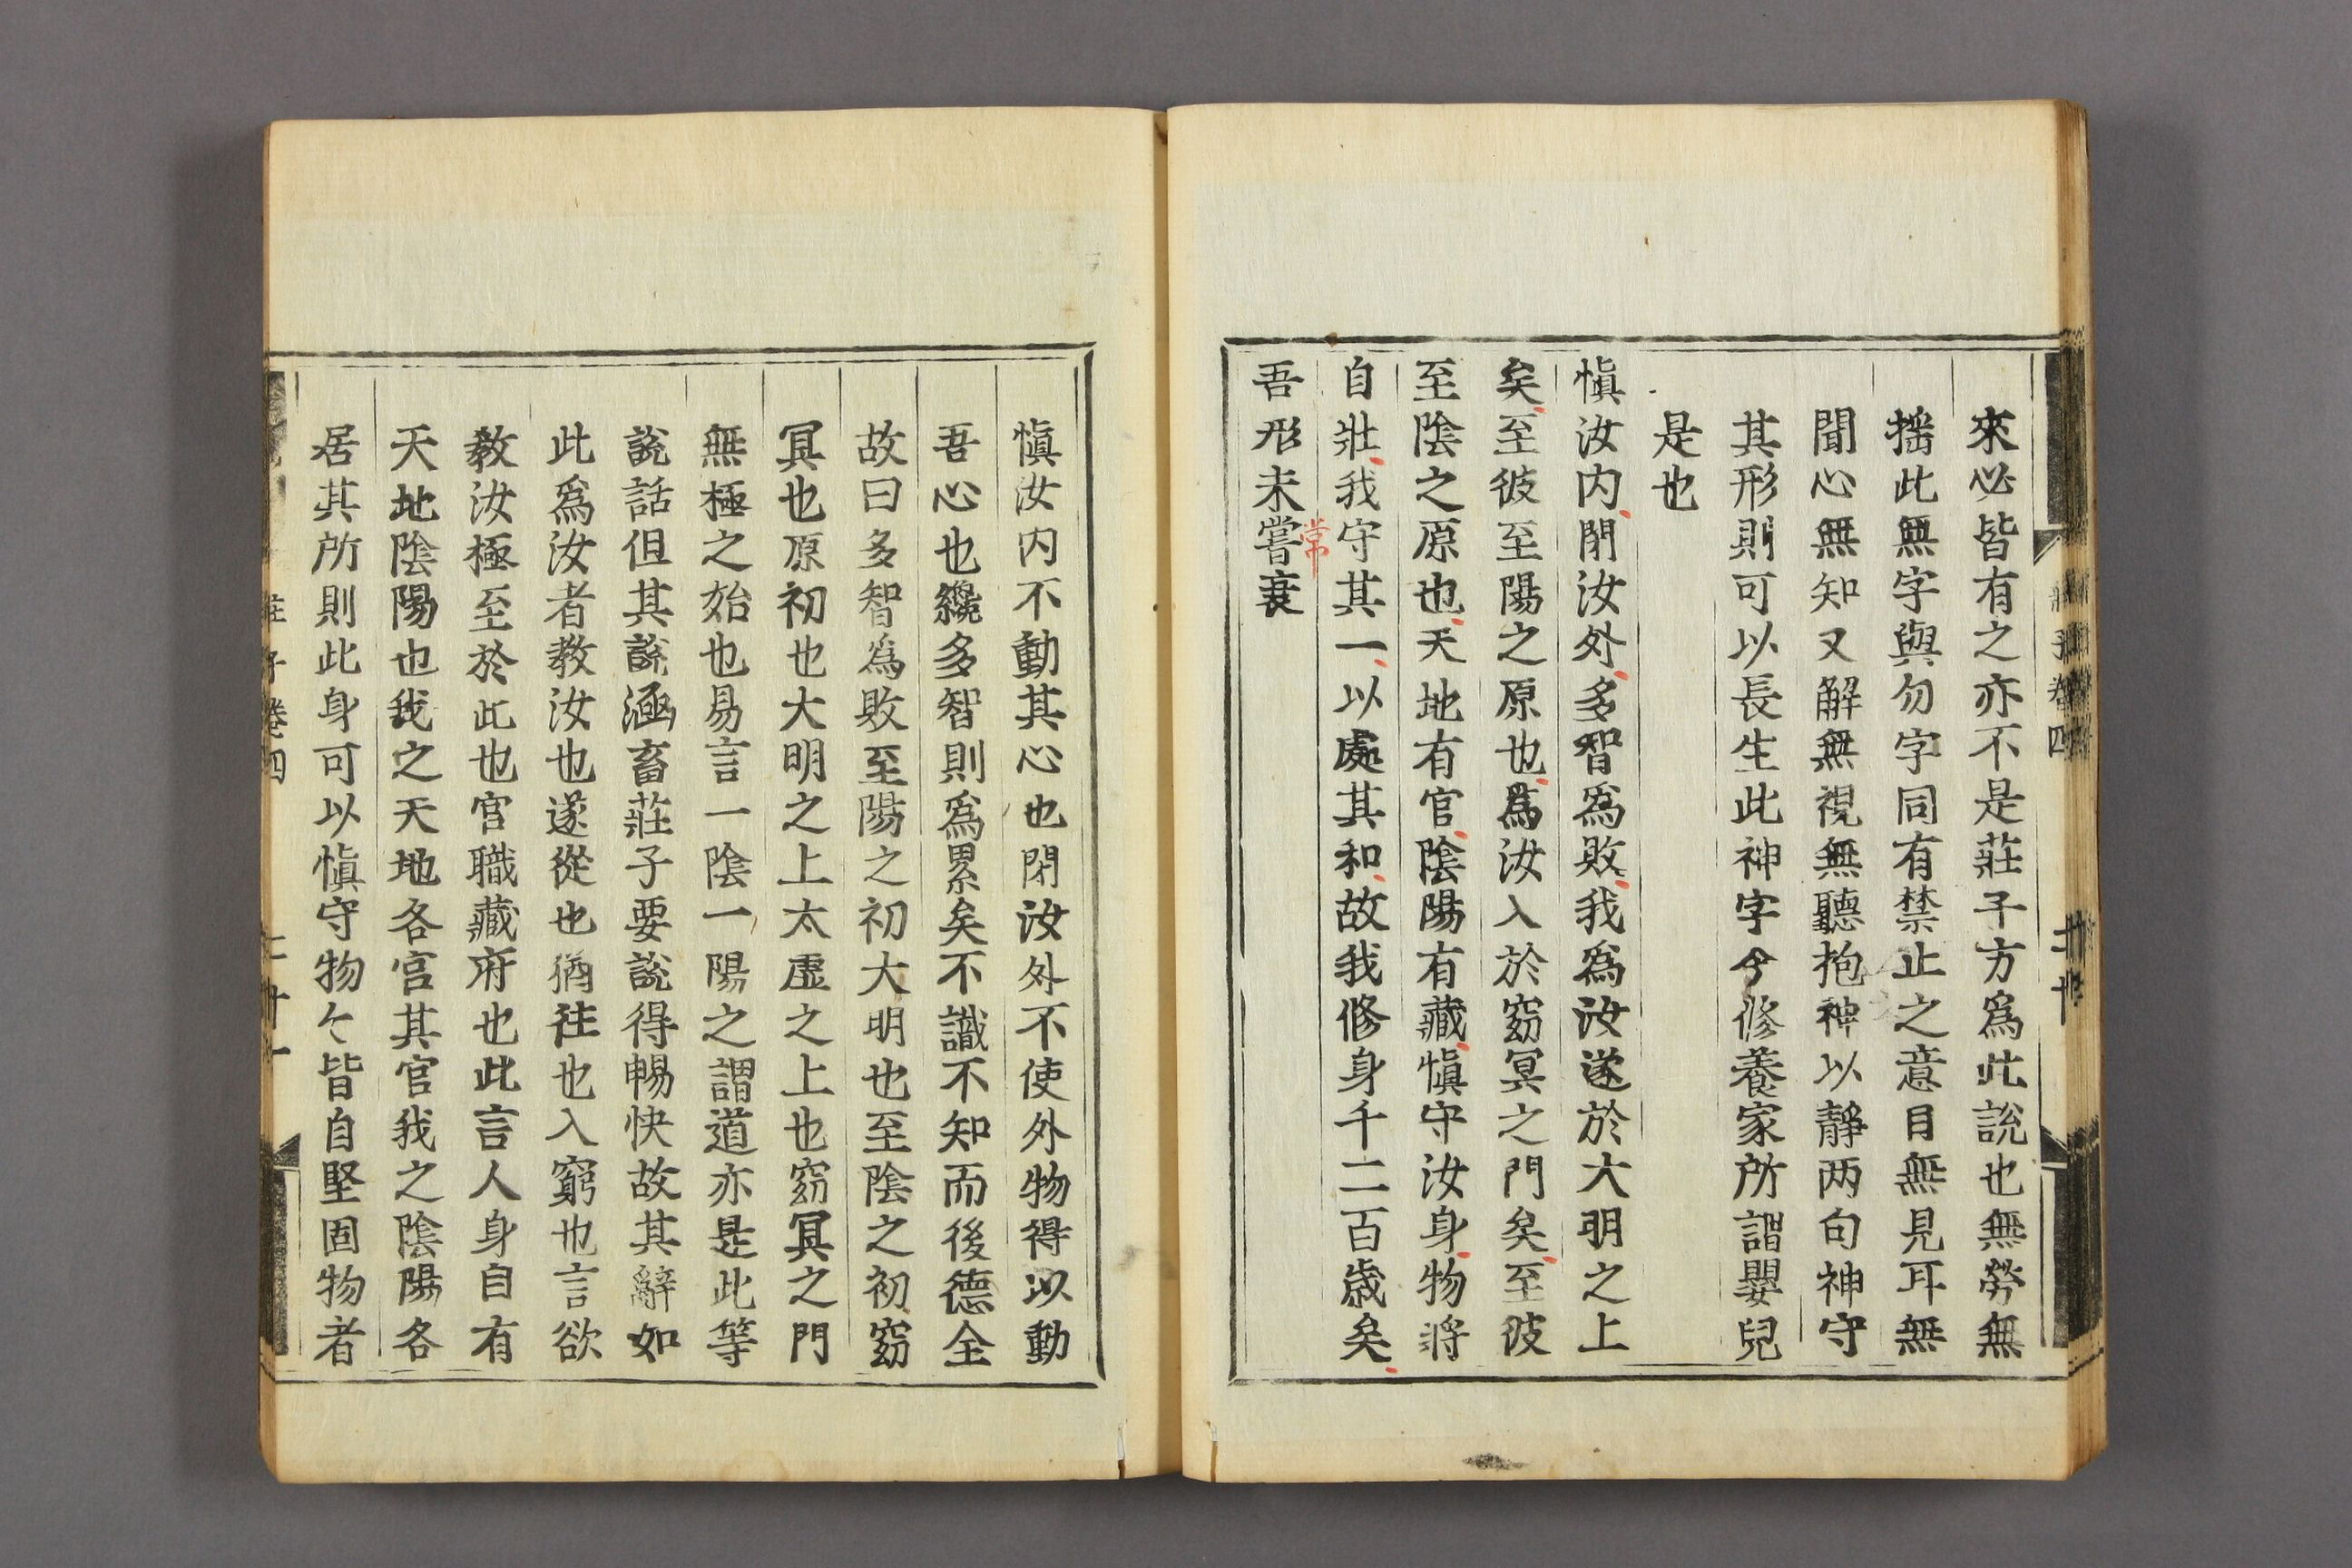 來必皆有之亦不是莊子方爲此說也無勞無
搖此無字與勿字同有禁止之意目無見耳無
聞心無知又解無視無聽抱神以靜两句神守
其形則可以長生此神字今修養家所謂嬰兒
是也
愼汝内閉汝外多智爲敗我爲汝遂於大明之上
矣至彼至陽之原也爲汝入於窈冥之門矣至彼
至陰之原也天地有官陰陽有藏愼守汝身物將
自壯我守其一以處其和故我修身千二百歲矣
吾形未嘗衰
常
愼汝内不動其心也閉汝外不使外物得以動
吾心也纔多智則爲累矣不識不知而後德全
故曰多智爲敗至陽之初大明也至陰之初窈
冥也原初也大明之上太虛之上也窈冥之門
無極之始也易言一陰一陽之謂道亦是此等
說話但其說涵畜莊子要說得暢快故其辭如
此爲汝者教汝也遂從也猶往也入窮也言欲
教汝極至於此也官職藏府也此言人身自有
天地陰陽也我之天地各官其官我之陰陽各
居其所則此身可以愼守物〻皆自堅固物者
莊子卷四
二十一